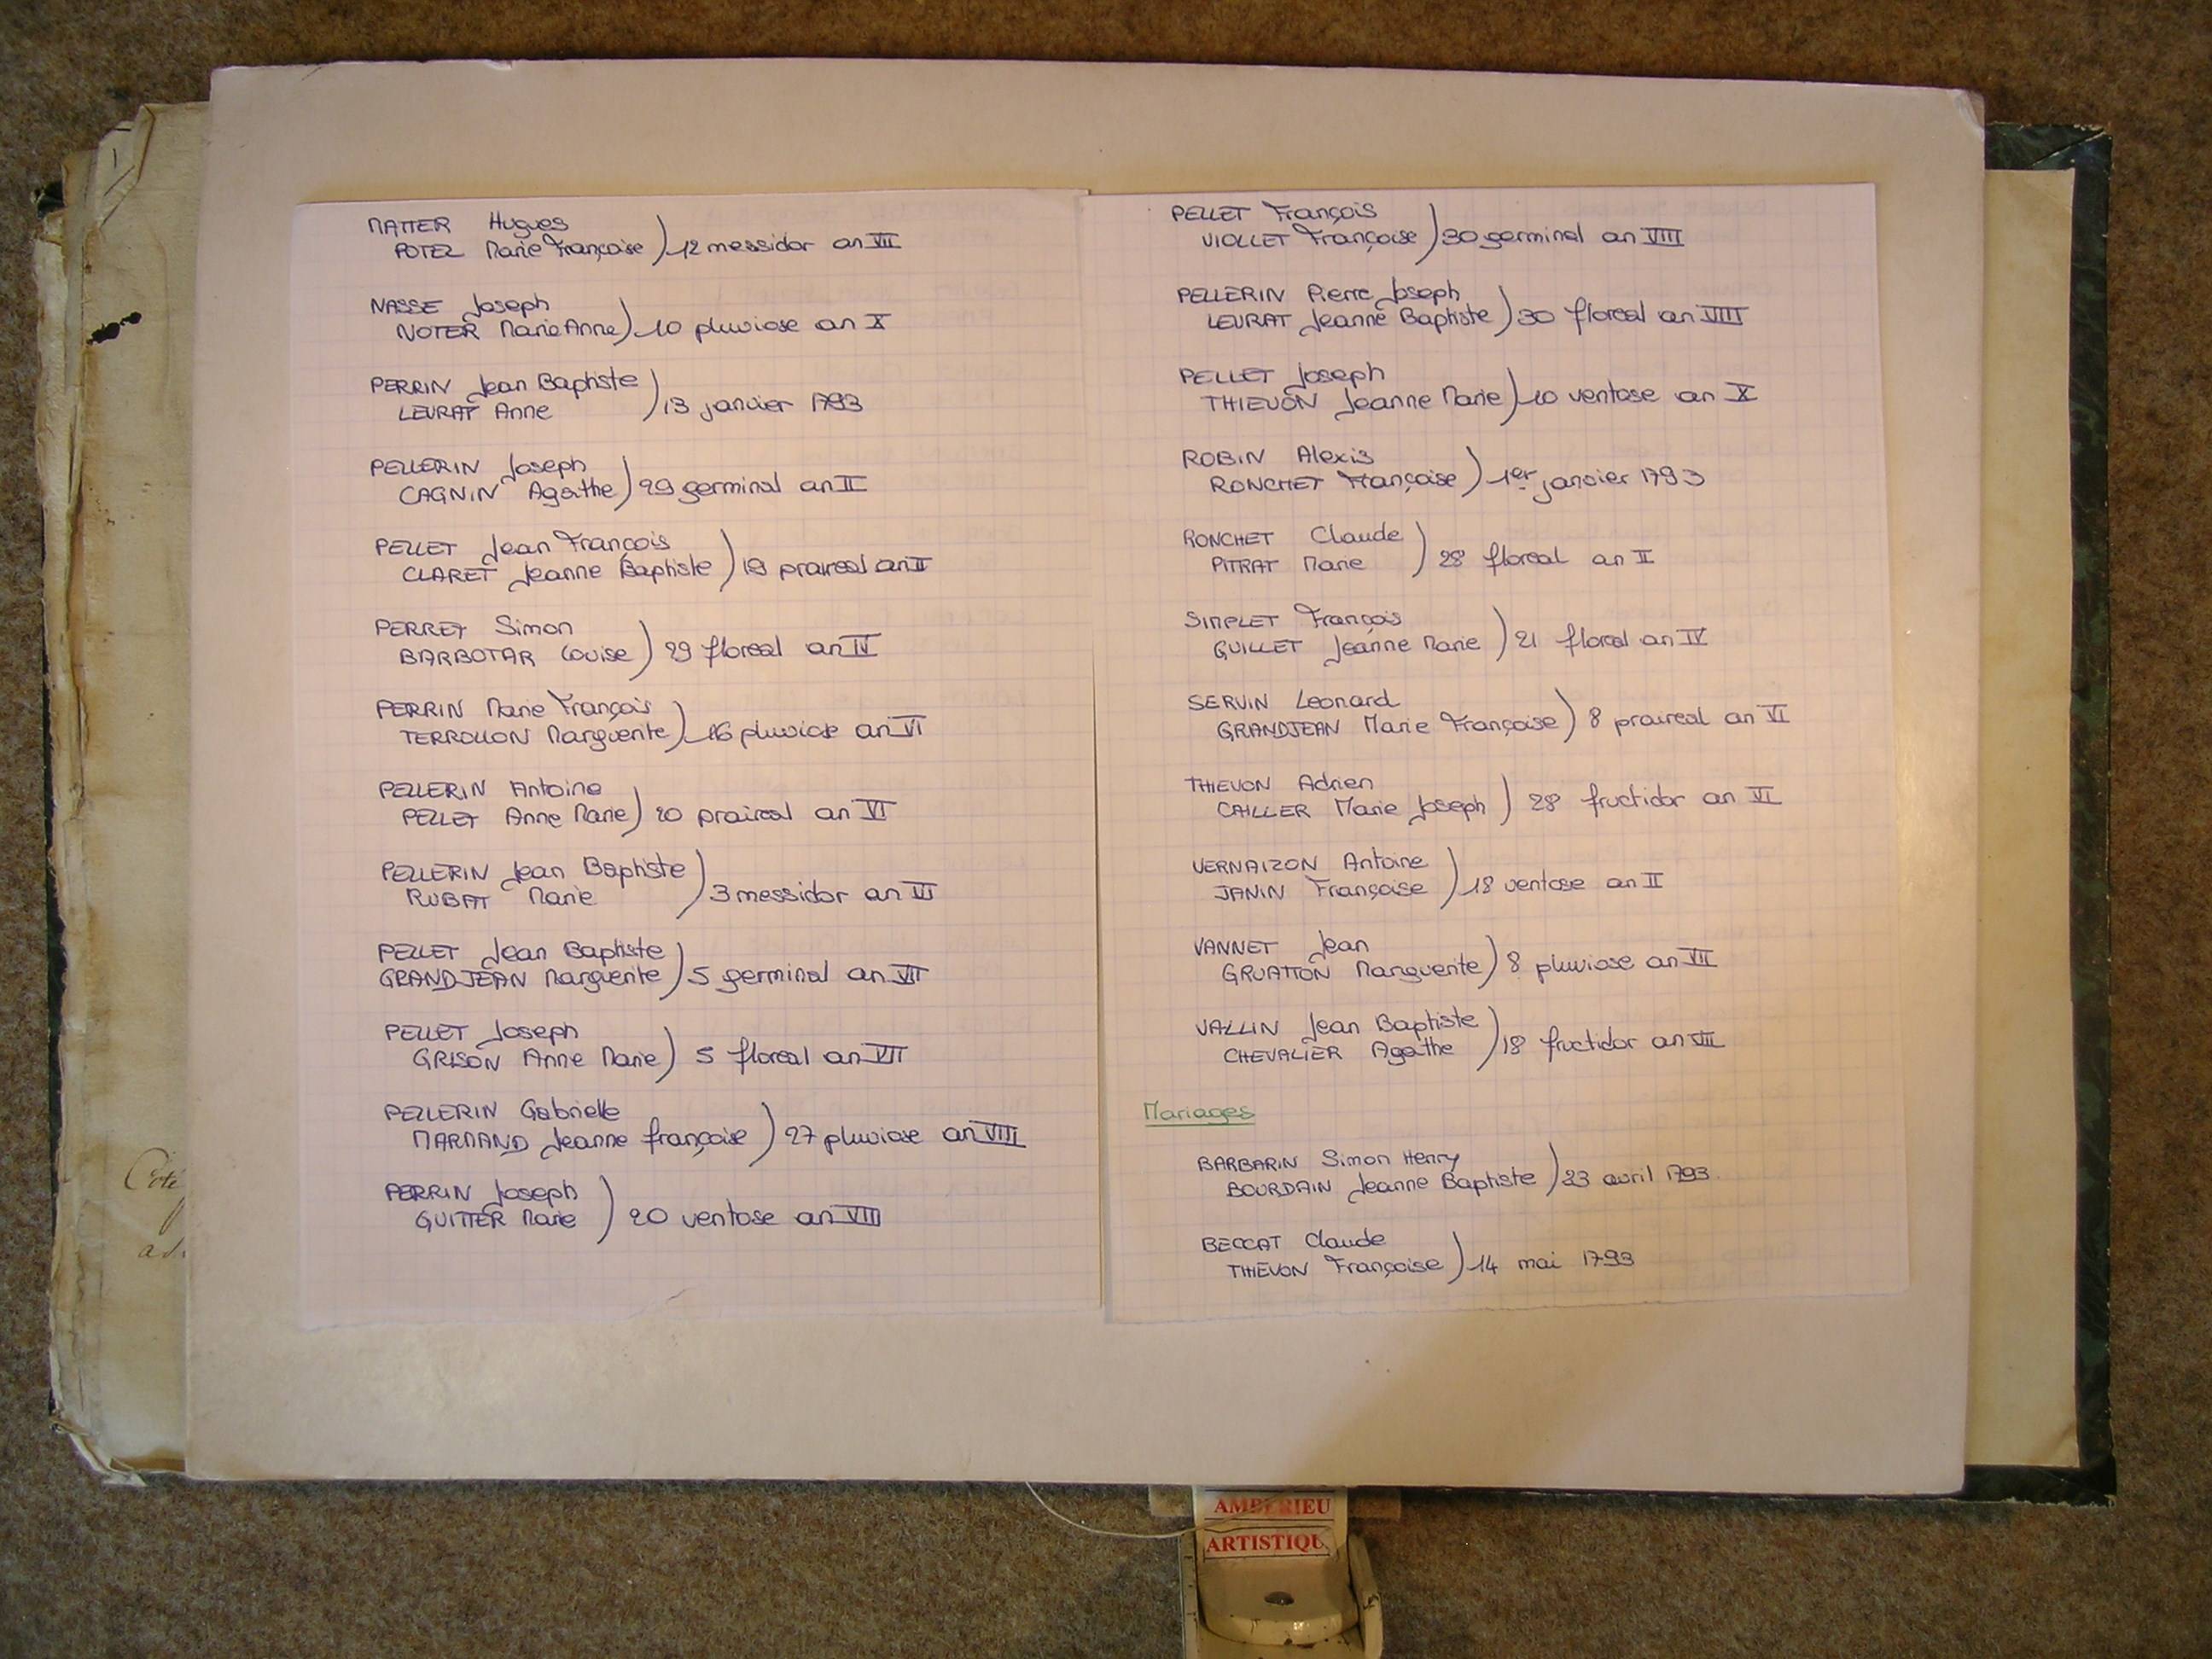 MATTER Hugues
POTEL Marie Françoise ) 12 messidor an VII
NASSE Joseph
NOTER Marie Anne ) 10 pluviose an X
PERRIN Jean Baptiste
LEURAT Anne ) 13 janvier 1793
PELLERIN Joseph
CAGNIN Agathe ) 29 germinal an II
PELLET Jean François
CLARET Jeanne Baptiste ) 19 praireal an II
PERRET Simon
BARBOTAR Louise ) 29 floreal an IV
PERRIN Marie François
TERROLLON Marguerite ) 16 pluviose an VI
PELLERIN Antoine
PELLET Anne Marie ) 20 praireal an VI
PELLERIN Jean Baptiste
RUBAT Marie ) 3 messidor an VI
PELLET Jean Baptiste
GRANDJEAN Marguerite ) 5 germinal an VII
PELLET Joseph
GRISON Anne Marie ) 5 floreal an VII
PELLERIN Gabrielle
MARMAND Jeanne françoise ) 27 pluviose an VIII
PERRIN Joseph
GUITTER Marie ) 20 ventose an VIII
PELLET François
VIOLLET Françoise ) 30 germinal an VIII
PELLERIN Pierre Joseph
LEURAT Jeanne Baptiste ) 30 floreal an VIIII
PELLET Joseph
THIEVON Jeanne Marie ) 10 ventose an X
ROBIN Alexis
RONCHET Françoise ) 1er janvier 1793
RONCHET Claude
PITRAT Marie ) 28 floreal an II
SIMPLET François
GUILLET Jeanne Marie ) 21 floreal an IV
SERVIN Leonard
GRANDJEAN Marie Françoise ) 8 praireal an VI
THIEVON Adrien
CAILLER Marie Joseph ) 28 fructidor an VI
VERNAIZON Antoine
JANIN Françoise ) 18 ventose an II
VANNET Jean
GRUATTON Marguerite ) 8 pluviose an VII
VALLIN Jean Baptiste
CHEVALIER Agathe ) 18 fructidor an VIII
Mariages
BARBARIN Simon Henry
BOURDAIN Jeanne Baptiste ) 23 avril 1793.
BECCAT Claude
THIEVON Françoise ) 14 mai 1793
Coté
AMBERIEU
ARTISTIQU